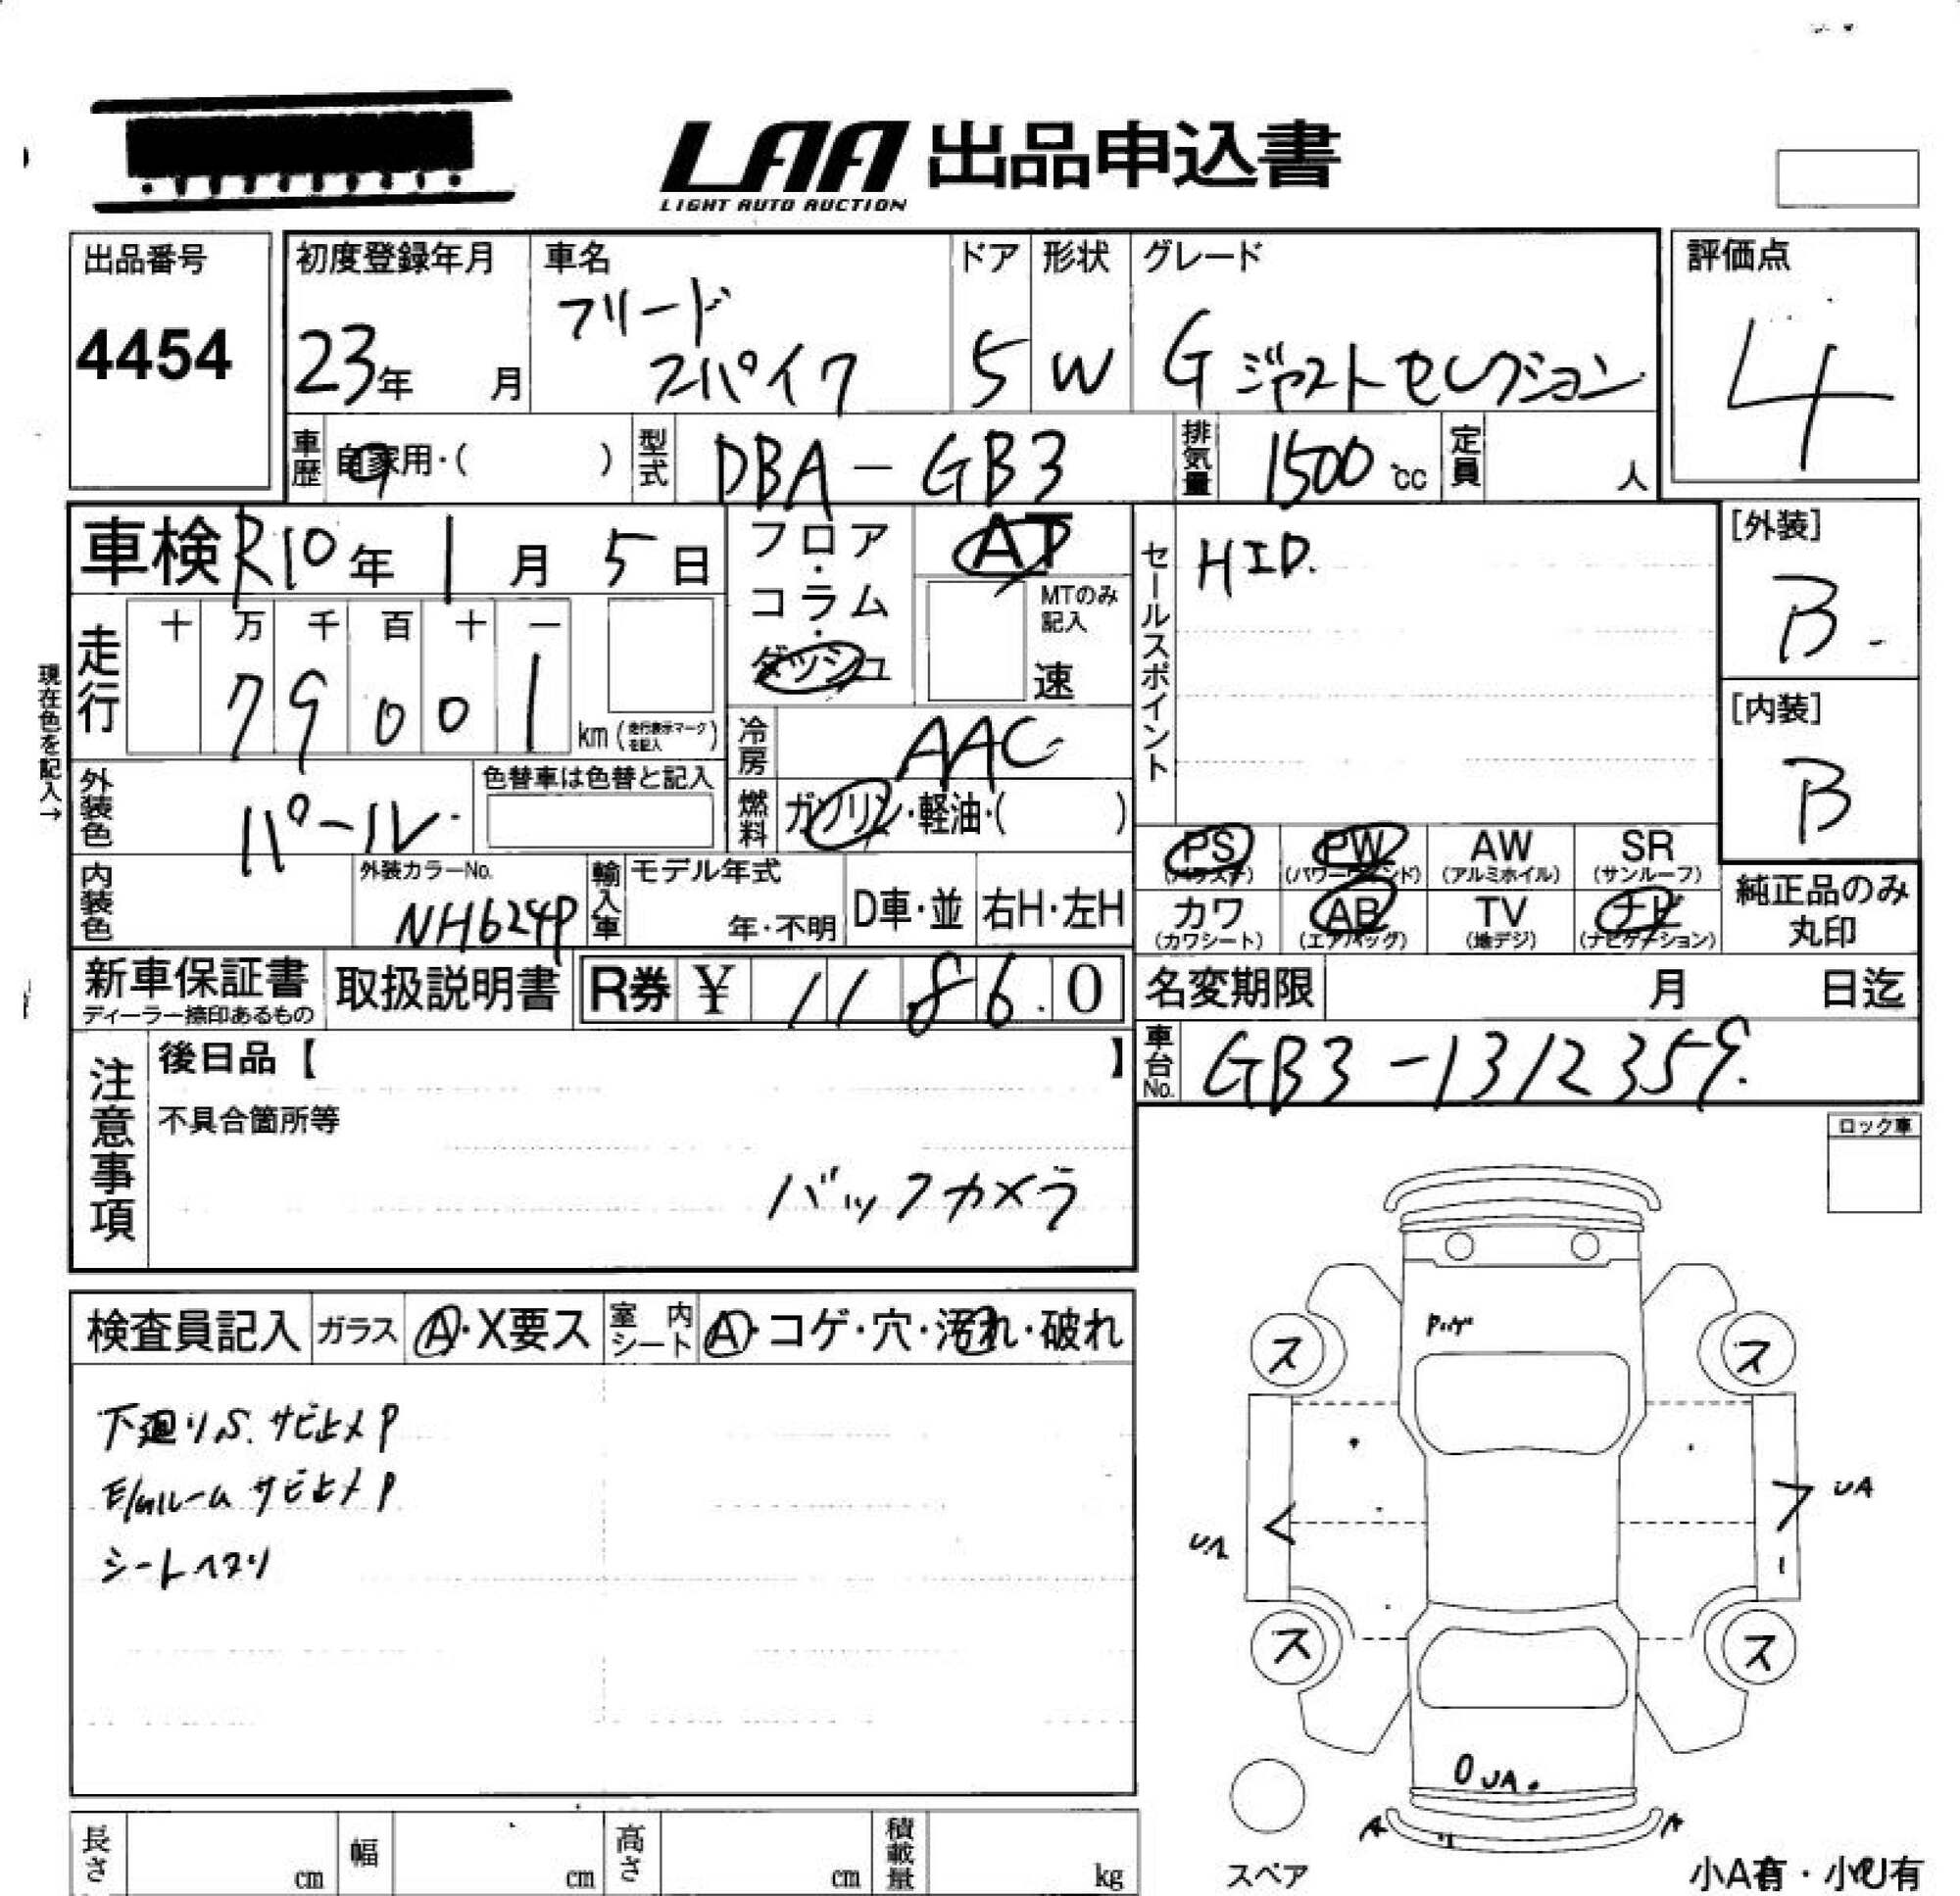 LAA 出品申込書
LIGHT AUTO AUCTION
出品番号
4454
初度登録年月
23年 月
車名
フリード
スパイク
ドア
5
形状
W
グレード
G ジャストセレクション
評価点
4
車歴 自家用・( )
型式 DBA-GB3
排気量 1500 cc
定員 人
車検 R10年 1月 5日
フロア・コラム・ダッシュ
AT
MTのみ記入
速
セールスポイント
HID.
[外装]
B
[内装]
B
現在色を記入→
走行
十 万 千 百 十 一
7 9 0 0 1
km (走行表示マークを記入)
冷房 AAC
外装色 パール
色替車は色替と記入
燃料 ガソリン・軽油・( )
内装色
外装カラーNo.
NH624P
輸入車
モデル年式
年・不明
D車・並
右H・左H
PS (パワステ)
PW (パワーウインド)
AW (アルミホイル)
SR (サンルーフ)
カワ (カワシート)
AB (エアバッグ)
TV (地デジ)
ナビ (ナビゲーション)
純正品のみ
丸印
新車保証書
ディーラー捺印あるもの
取扱説明書
R券 ¥ 11860
名変期限 月 日迄
車台No. GB3-1312359.
注意事項
後日品【 】
不具合箇所等
バックカメラ
ロック車
検査員記入
ガラス A・X要ス
室内シート A・コゲ・穴・汚れ・破れ
下廻りS.サビ止メP
E/gルーム サビ止メP
シートヘタリ
ス
ス
UA
UA
ス
ス
UA.
A
A
スペア
小A有・小U有
長さ cm
幅 cm
高さ cm
積載量 kg